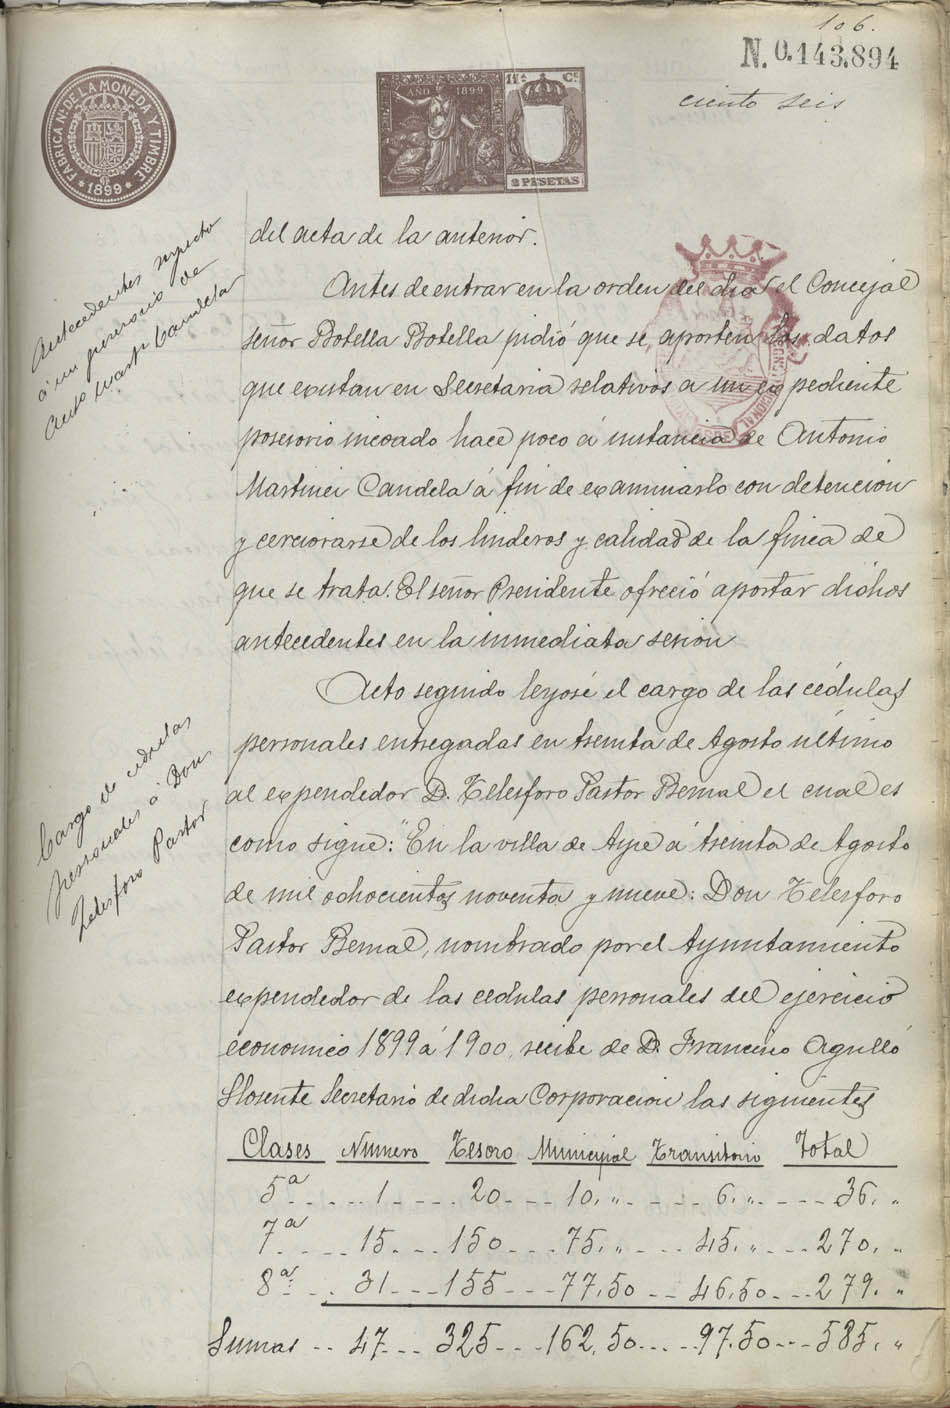 106.
N. 0.143.894
ciento seis
FABRICA Nl. DE LA MONEDA Y TIMBRE
* 1899 *
AÑO 1899
11ª Ce.
2 PESETAS
Antecedentes respecto
á un posesorio de
Anto Martz Candela
del acta de la anterior.
Antes de entrar en la orden del dia el Concejal
señor Botella Botella pidió que se aporten los datos
que existan en Secretaria relativos a un expediente
posesorio incoado hace poco á instancia de Antonio
Martinez Candela á fin de examinarlo con detencion
y cerciorarse de los linderos y calidad de la finca de
que se trata. El señor Presidente ofreció aportar dichos
antecedentes en la inmediata sesion
Cargo de cedulas
personales á Don
Telesforo Pastor
Acto seguido leyose el cargo de las cédulas
personales entregadas en treinta de Agosto último
al expendedor D. Telesforo Pastor Bernal el cual es
como sigue: "En la villa de Aspe á treinta de Agosto
de mil ochocientos noventa y nueve: Don Telesforo
Pastor Bernal, nombrado por el Ayuntamiento
expendedor de las cedulas personales del ejercicio
economico 1899 á 1900, recibe de D. Francisco Agulló
Llorente Secretario de dicha Corporacion las siguientes
Clases Numero Tesoro Municipal Transitorio Total
5ª 1 20 10, " 6, " 36, "
7ª 15 150 75, " 45, " 270, "
8ª 31 155 77,50 46,50 279, "
Sumas 47 325 162,50 97,50 585, "